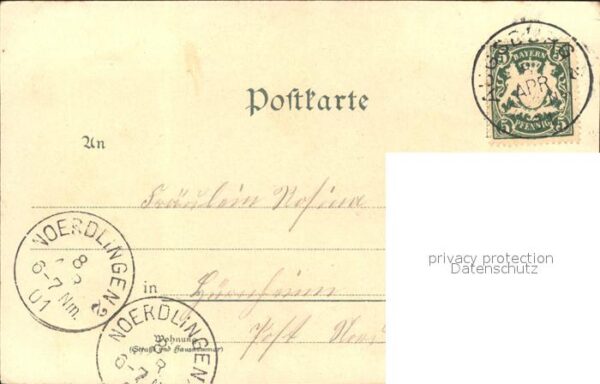 AUGSBURG 2
APR
BAYERN
5 5
5 PFENNIG 5
Postkarte
An
Fräulein Rosina
privacy protection
Datenschutz
NOERDLINGEN 2
8
6-7 Nm.
01
in Hürnheim
Post
Wohnung
(Straße und Hausnummer)
NOERDLINGEN
8
6-7 Nm